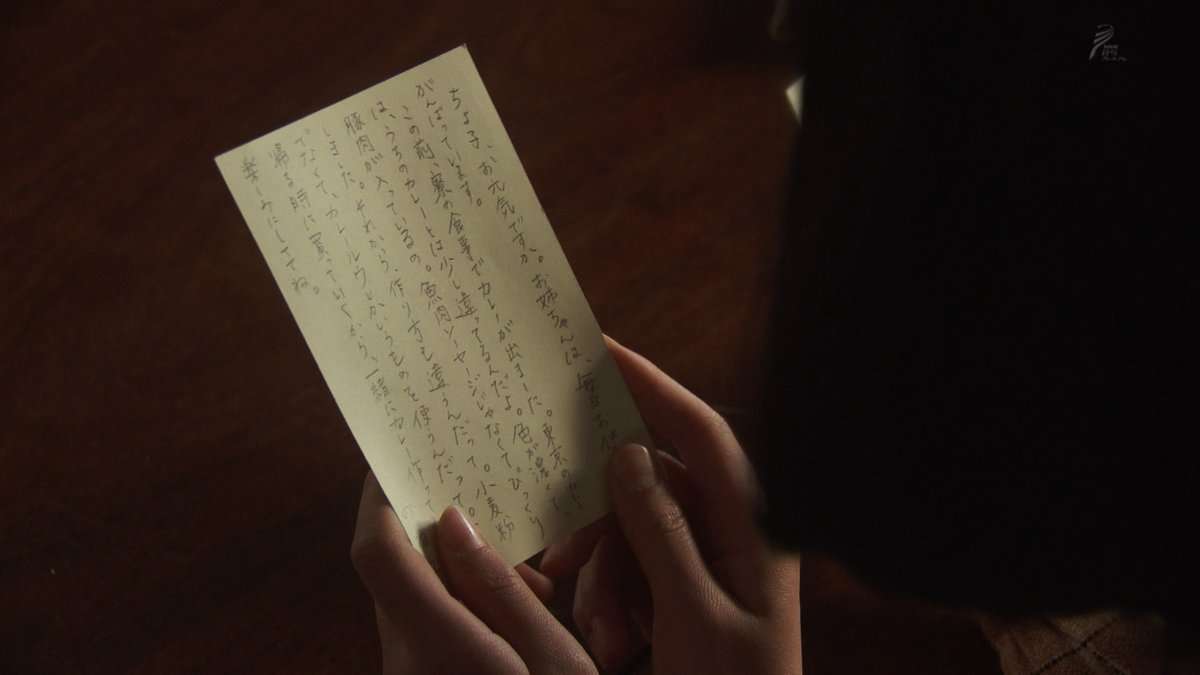 ちよ子、お元気ですか。お姉ちゃんは、毎日お
がんばっています。
この前、寮の食事でカレーが出ました。東京の
は、うちのカレーとは少し違ってるんだよ。色が濃くて、
豚肉が入っているの。魚肉ソーセージじゃなくて。びっくり
しました。それから、作り方も違うんだって。小麦粉
でなくて、カレールウとかいうものを使うんだって。
帰る時に買っていくから、一緒にカレー作って
楽しみにしててね。